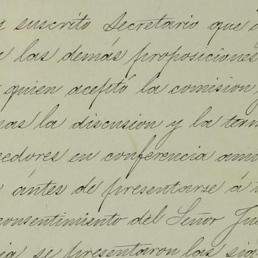 suscrito Secretario que
las demas proposiciones
quien aceptó la comision
la discusion y la
en conferencia
ántes de presentarse á
consentimiento del Señor
se presentaron las